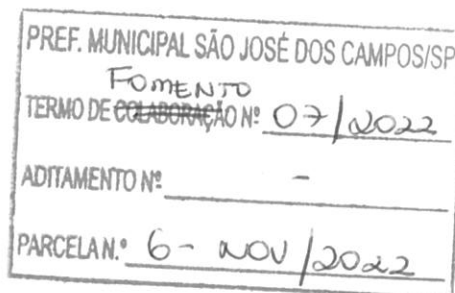 PREF. MUNICIPAL SÃO JOSÉ DOS CAMPOS/SP
FOMENTO
TERMO DE COLABORAÇÃO Nº 07/2022
ADITAMENTO Nº -
PARCELA N.º 6- NOV/2022